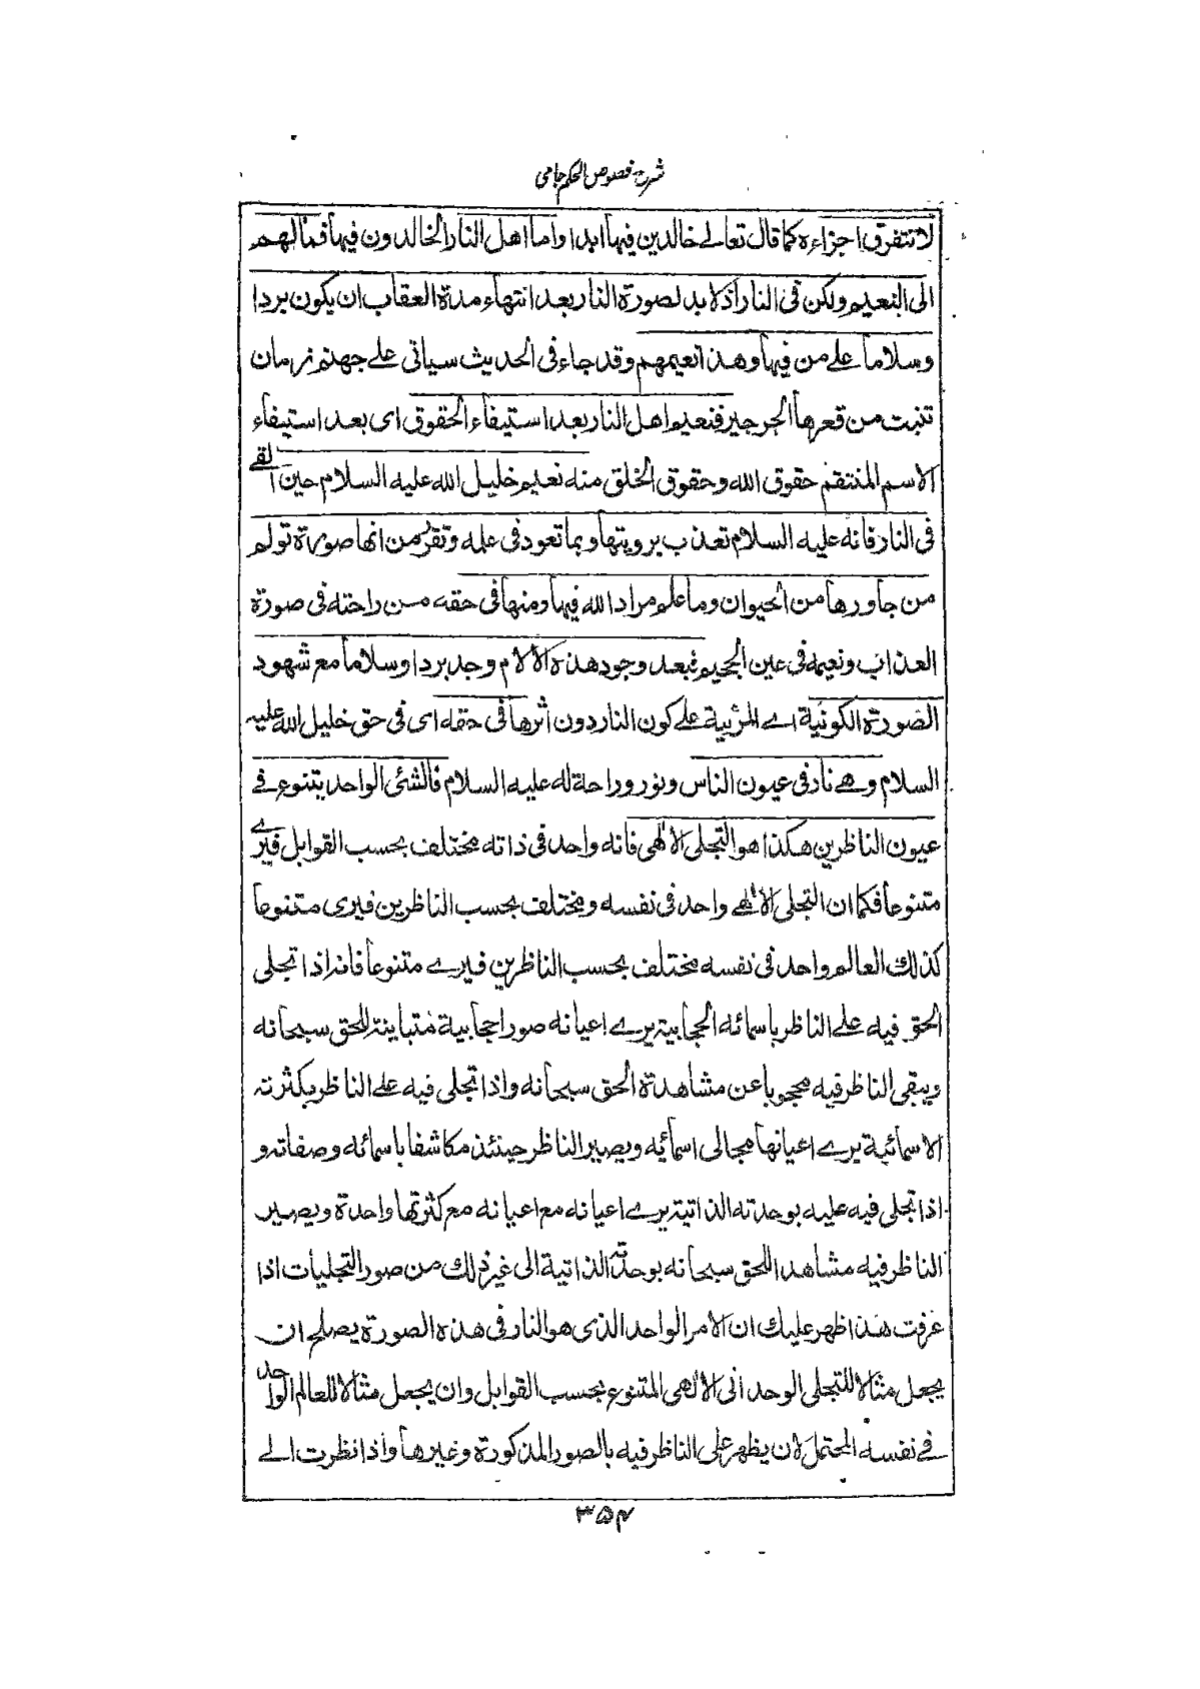 شرح فصوص الحكم جامى
لا تتفرق اجزاءه كما قال تعالے خالدين فيها ابدا واما اهل النار الخالدون فيها فمآلهم
الى النعيم ولكن فى النار اذ لا بد لصورة النار بعد انتهاء مدة العقاب ان يكون بردا
وسلاما علے من فيها وهذا نعيمهم وقد جاء فى الحديث سياتى علے جهنم زمان
تنبت من قعرها الجرجير فنعيم اهل النار بعد استيفاء الحقوق اى بعد استيفاء
الاسم المنتقم حقوق الله وحقوق الخلق منه نعيم خليل الله عليه السلام حين القے
فى النار فانه عليه السلام تعذب برويتها وبما تعود فى علمه وتقرر من انها صورة تولم
من جاورها من الحيوان وما علم مراد الله فيها ومنها فى حقه من راحته فى صورة
العذاب ونعيمه فى عين الجحيم فبعد وجود هذه الالام وجد بردا وسلاما مع شهود
الصورة الكونية اے المرئية علے كون النار دون اثرها فى حقه اى فى حق خليل الله عليه
السلام وهے نار فى عيون الناس ونور وراحة له عليه السلام فالشئ الواحد يتنوع فے
عيون الناظرين هكذا هو التجلى الالٰهى فانه واحد فى ذاته مختلف بحسب القوابل فيرے
متنوعا فكما ان التجلى الالٰهے واحد فى نفسه ومختلف بحسب الناظرين فيرى متنوعا
كذلك العالم واحد فى نفسه مختلف بحسب الناظرين فيرے متنوعا فانه اذا تجلى
الحق فيه علے الناظر باسمائه الحجابية يرے اعيانه صورا حجابية متباينة للحق سبحانه
ويبقى الناظر فيه محجوبا عن مشاهدة الحق سبحانه واذا تجلى فيه علے الناظر بكثرته
الاسمائية يرے اعيانها مجالى اسمائيه ويصير الناظر حينئذ مكاشفا باسمائه وصفاته و
اذا تجلى فيه عليه بوحدته الذاتية يرے اعيانه مع اعيانه مع كثرتها واحدة ويصير
الناظر فيه مشاهدا للحق سبحانه بوحدته الذاتية الى غير ذلك من صور التجليات اذا
عرفت هذا ظهر عليك ان الامر الواحد الذى هو النار فى هذه الصورة يصلح ان
يجعل مثالا للتجلى الوحدانى الالهى المتنوع بحسب القوابل وان يجعل مثالا للعالم الواحد
فے نفسه المحتمل لان يظهر على الناظر فيه بالصور المذكورة وغيرها واذا نظرت الے
۳۵۴